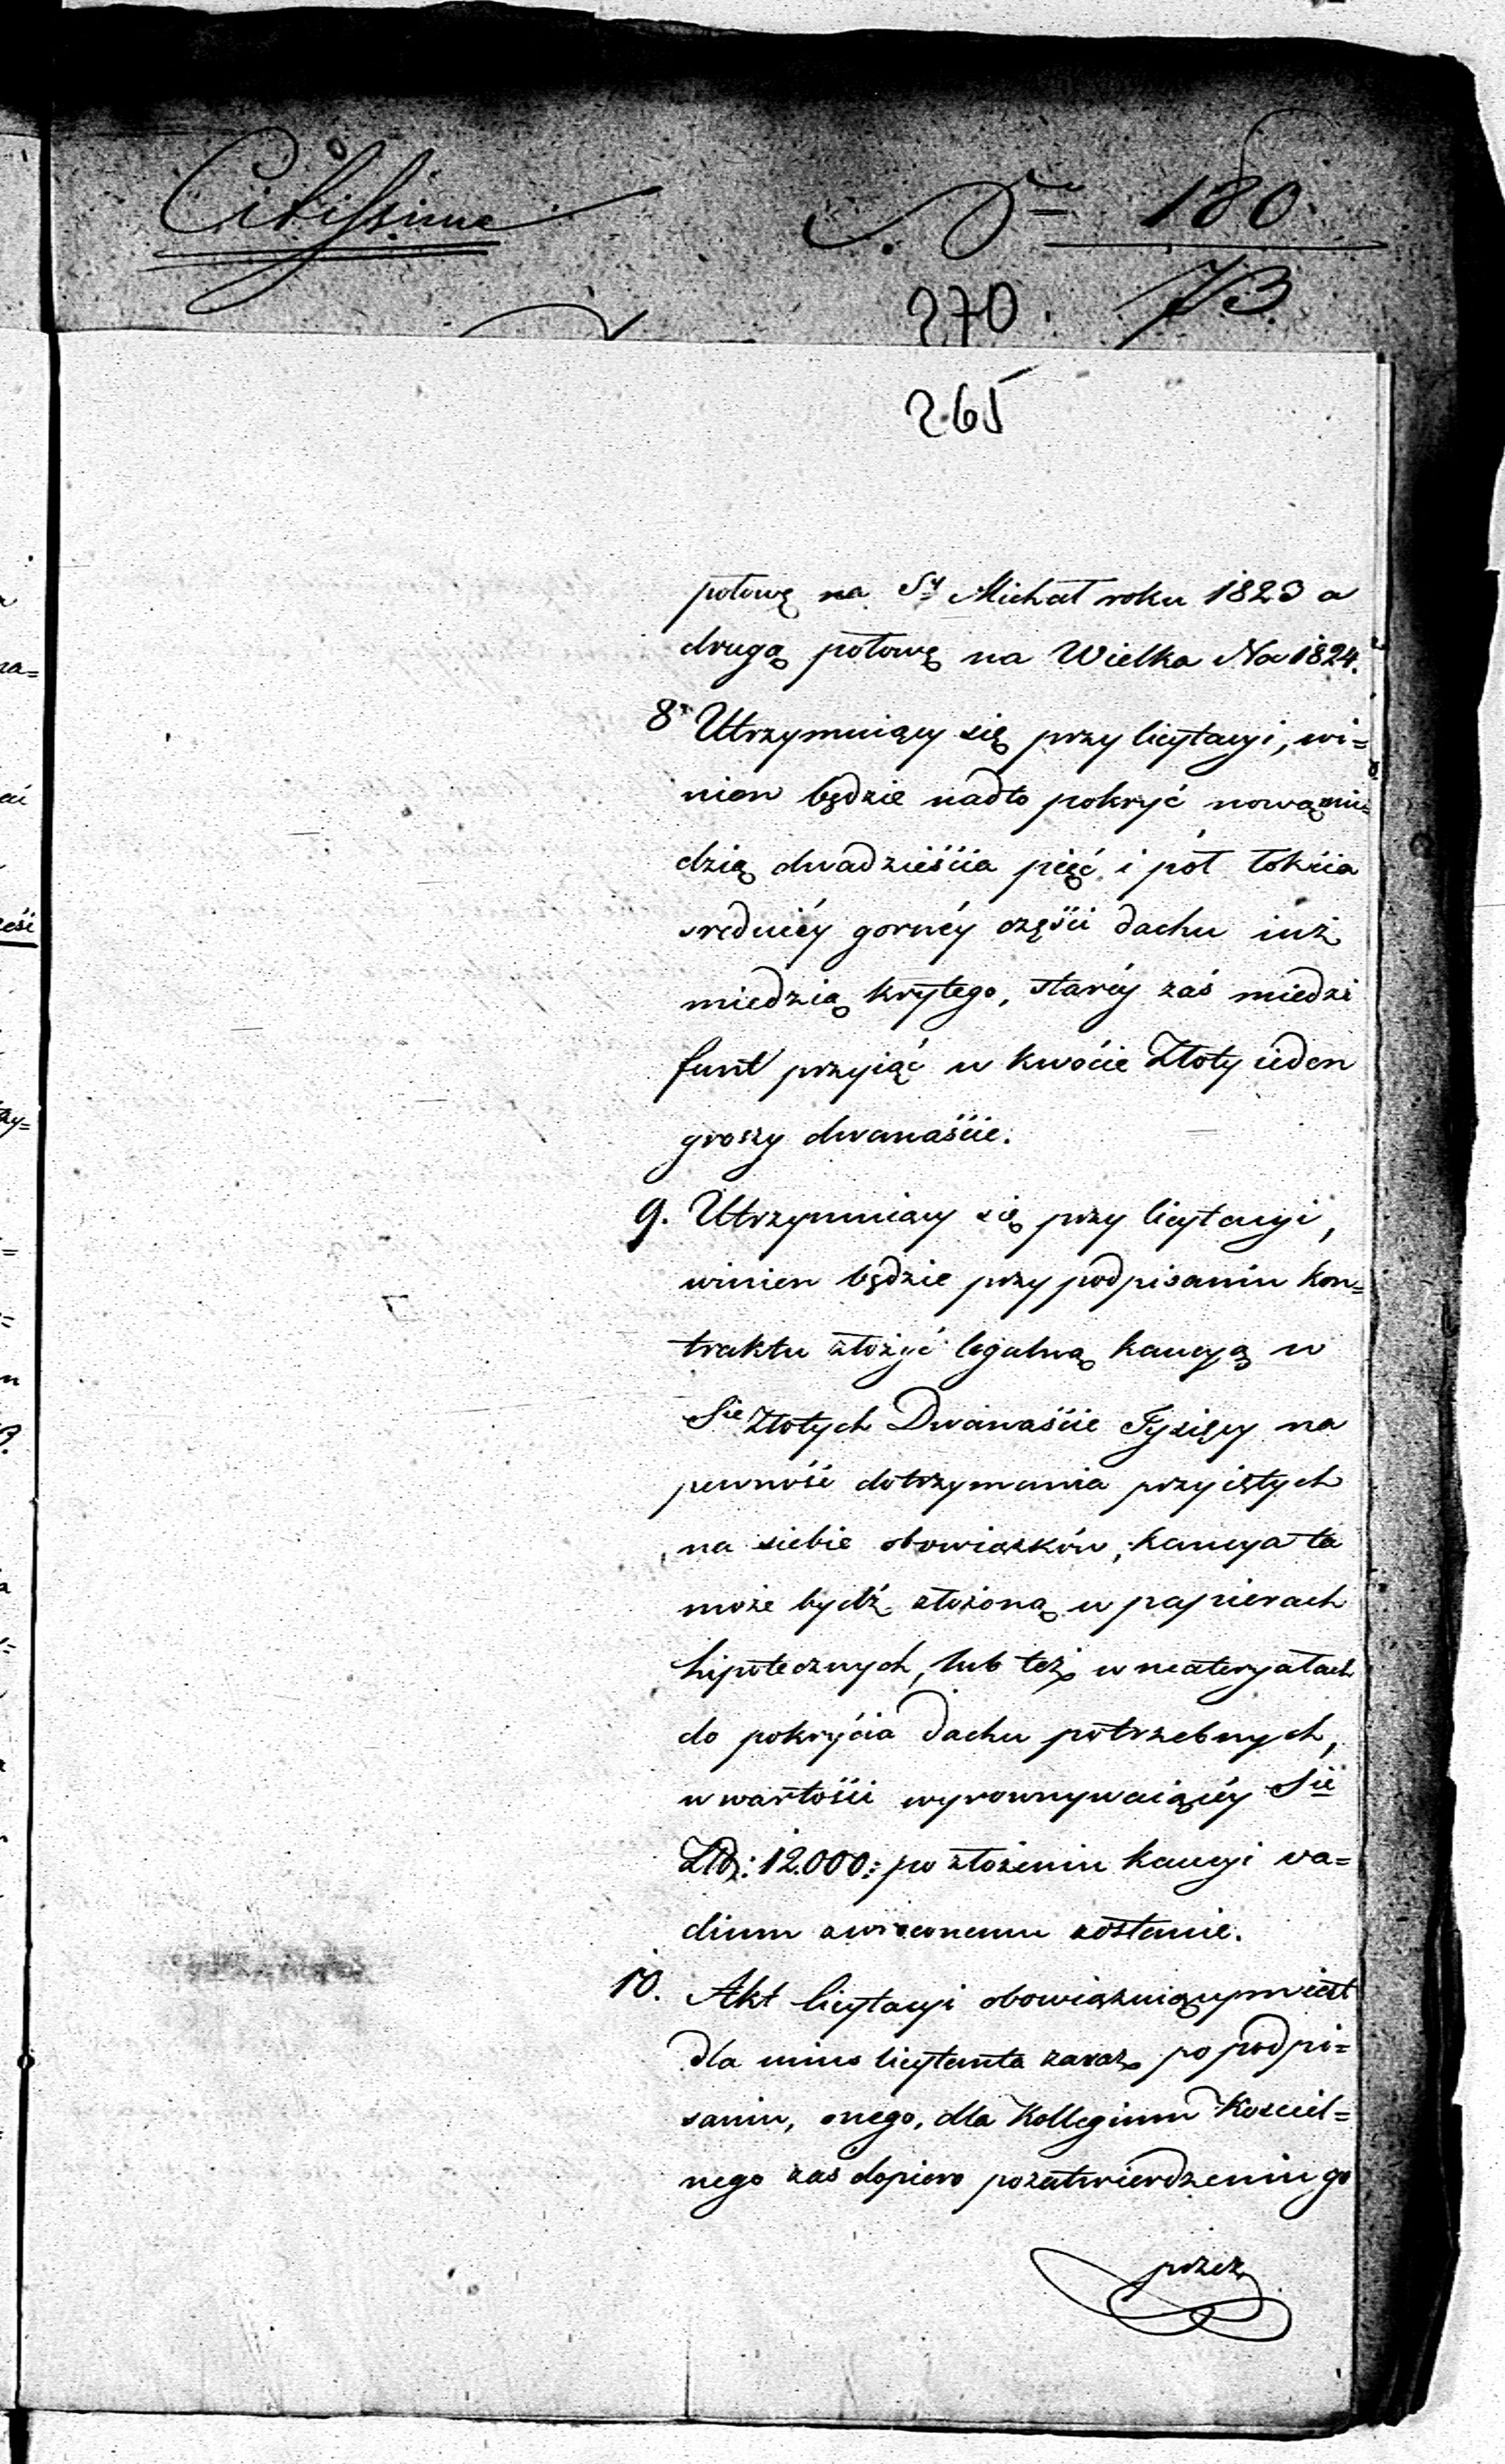 Citissime
180.
270. 73
265
połowę na Sy Michał roku 1823 a
drugą połowę na Wielka Noc 1824.
8. Utrzymuiący się przy licytacyi, wi=
nien będzie nadto pokryć nową mie=
dzią dwadzieścia pięć i pół łokcia
srednićy gornéy części dachu iuż
miedzią krytego, staréy zaś miedzi
funt przyiąć w kwocie Złoty ieden
groszy dwanaście.
9. Utrzymuiący się przy licytacyi,
winien będzie przy podpisaniu kon=
traktu złożyć legalną kaucyą w
Sie Złotych Dwanaście Tysięcy na
pewność dotrzymania przyiętych
na siebie obowiązków, kaucya ta
może bydź złożoną w papierach
hipotecznych, lub też w materyałach
do pokrycia dachu potrzebnych,
w wartości wyrownywaiącéy Sie
Złp: 12.000: po złożeniu kaucyi va=
dium zwróconemu zostanie.
10. Akt licytacyi obowiązuiącym iest
dla minus licytanta zaraz po podpi=
saniu, onego, dla Kollegium Kościel=
nego zaś dopiero po zatwierdzeniu go
przez